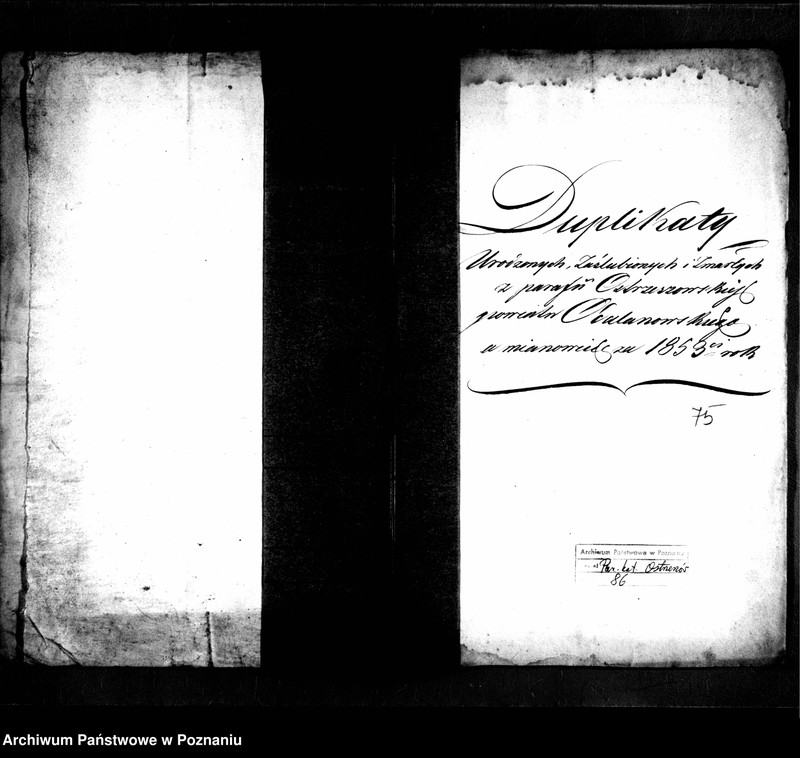 Duplikaty
Urodzonych, Zaślubionych i Zmarłych
z parafii Ostrzeszowskiéj
powiatu Odalanowskiego
a mianowicie za 1853 rok
75
Archiwum Państwowe w Poznaniu
Par. kat. Ostrzeszów
86
Archiwum Państwowe w Poznaniu